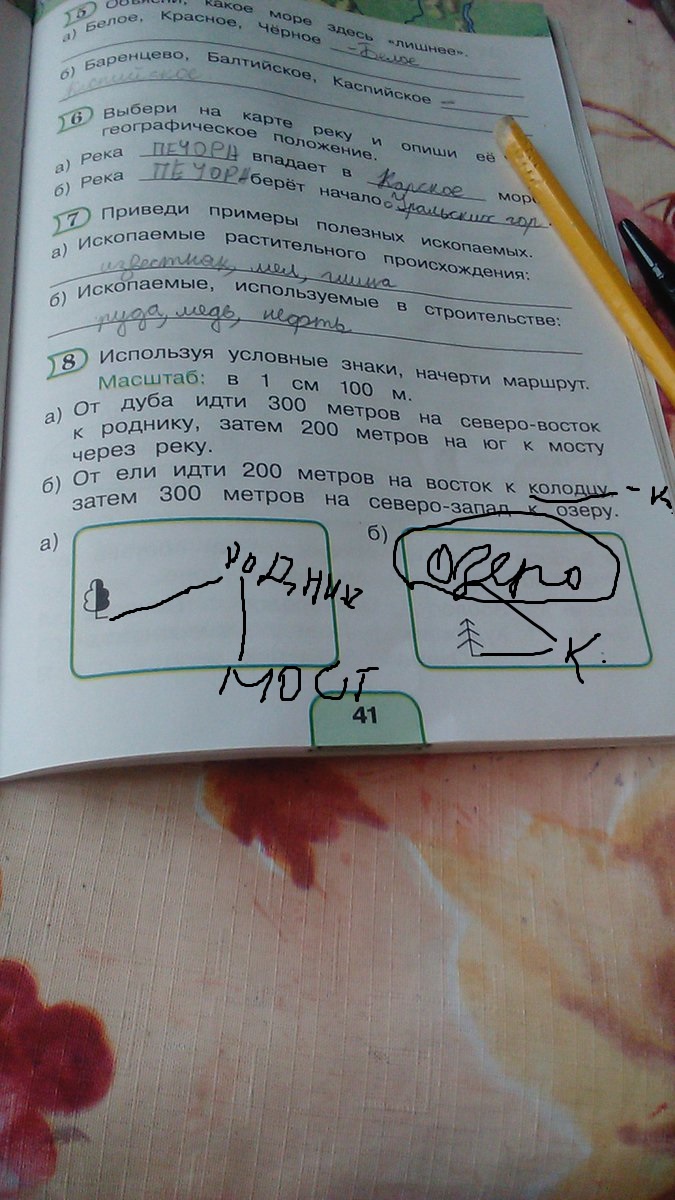 5 Объясни, какое море здесь «лишнее».
а) Белое, Красное, Чёрное - Белое
б) Баренцево, Балтийское, Каспийское -
Каспийское
6 Выбери на карте реку и опиши её
географическое положение.
а) Река ПЕЧОРА впадает в Карское мор
б) Река ПЕЧОРА берёт начало с Уральских гор.
7 Приведи примеры полезных ископаемых.
а) Ископаемые растительного происхождения:
известняк, мел, глина
б) Ископаемые, используемые в строительстве:
руда, медь, нефть
8 Используя условные знаки, начерти маршрут.
Масштаб: в 1 см 100 м.
а) От дуба идти 300 метров на северо-восток
к роднику, затем 200 метров на юг к мосту
через реку.
б) От ели идти 200 метров на восток к колодцу - К
затем 300 метров на северо-запад к озеру.
а)
РОДНИК
МОСТ
б)
Озеро
К.
41